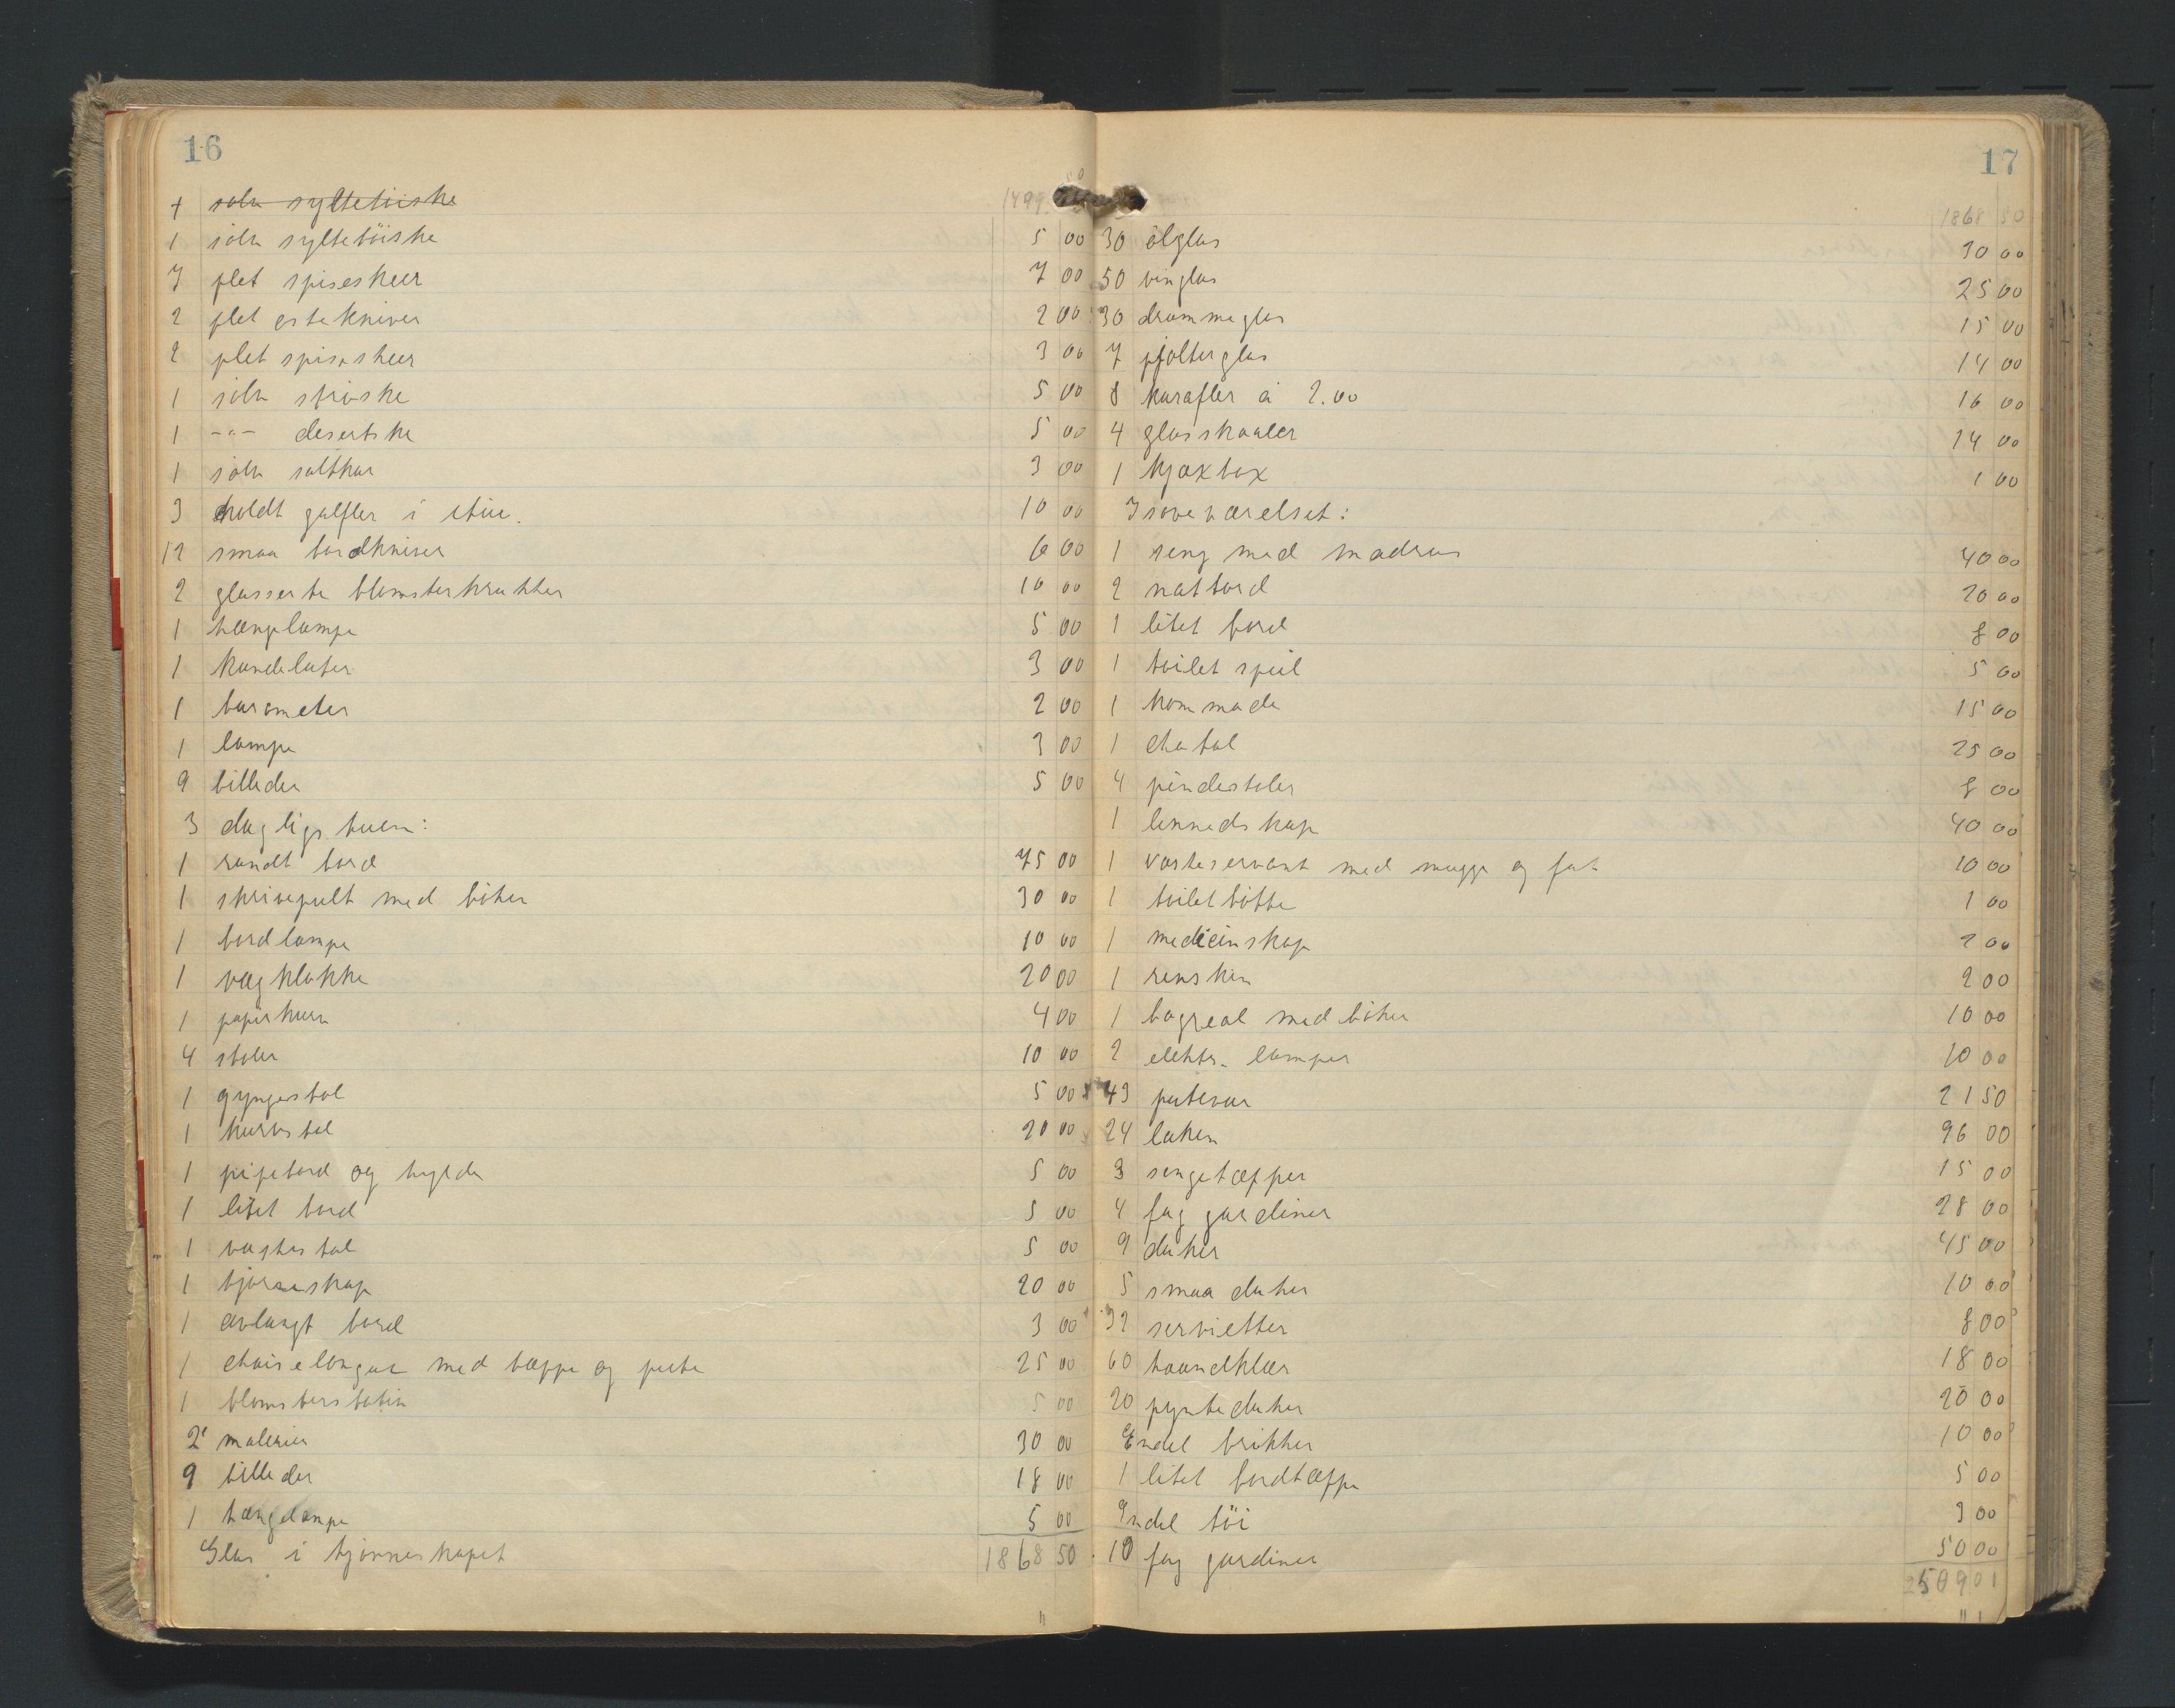 16
1 sølv syltetøiske 1499 50
1 sølv syltetöiske 5 00
7 plet spiseskeer 7 00
2 plet ostekniver 2 00
2 plet spiseskeer 3 00
1 sölv ströske 5 00
1 -"- desertske 5 00
1 sölv saltkar 3 00
3 holdt galfler i etui. 10 00
12 smaa bordkniver 6 00
2 glasserte blomsterkrukker 10 00
1 hænglampe 5 00
1 kandelater 3 00
1 barometer 2 00
1 lampe 3 00
9 billeder 5 00
I dagligstuen:
1 rundt bord 75 00
1 skrivepult med böker 30 00
1 bordlampe 10 00
1 vægklokke 20 00
1 papirkurv 4 00
4 stoler 10 00
1 gyngestol 5 00
1 kurvstol 20 00
1 pipebord og hylde 5 00
1 litet bord 5 00
1 stol 5 00
1 hjörneskap 20 00
1 avlangt bord 3 00
1 chaiselongue med tæppe og pute 25 00
1 blomsterstativ 5 00
2 malerier 30 00
9 billeder 18 00
1 hængelampe 5 00
Glas i hjörneskapet 1868 50
17
1868 50
30 ölglas 30 00
50 vinglas 25 00
30 drammeglas 15 00
7 pjolterglas 14 00
8 karafler á 2.00 16 00
4 glasskaaler 14 00
1 kjæxbox 1 00
I soveværelset:
1 seng med madras 40 00
2 natbord 20 00
1 litet bord 8 00
1 toilet speil 5 00
1 kommode 15 00
1 chatol 25 00
4 pindestoler 8 00
1 linnedskap 40 00
1 vaskeservant med mugge og fat 10 00
1 toiletbötte 1 00
1 medicinskap 2 00
1 renskin 2 00
1 bogreol med böker 10 00
2 elektr. lamper 10 00
43 putevar 21 50
24 laken 96 00
3 sengetæpper 15 00
4 fag gardiner 28 00
9 duker 45 00
5 smaa duker 10 00
32 servietter 8 00
60 haandklær 18 00
20 pynteduker 20 00
Endel brikker 10 00
1 litet bordtæppe 5 00
Endel töi 3 00
10 fag gardiner 50 00